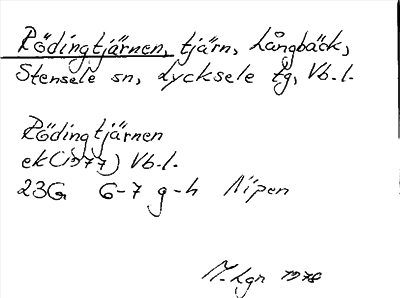 Rödingtjärnen, tjärn, Långbäck,
Stensele sn, Lycksele tg, Vb.l.
Rödingtjärnen
ek (1977) Vb.l.
23G 6-7 g-h Nipen
M. Lgn 1978